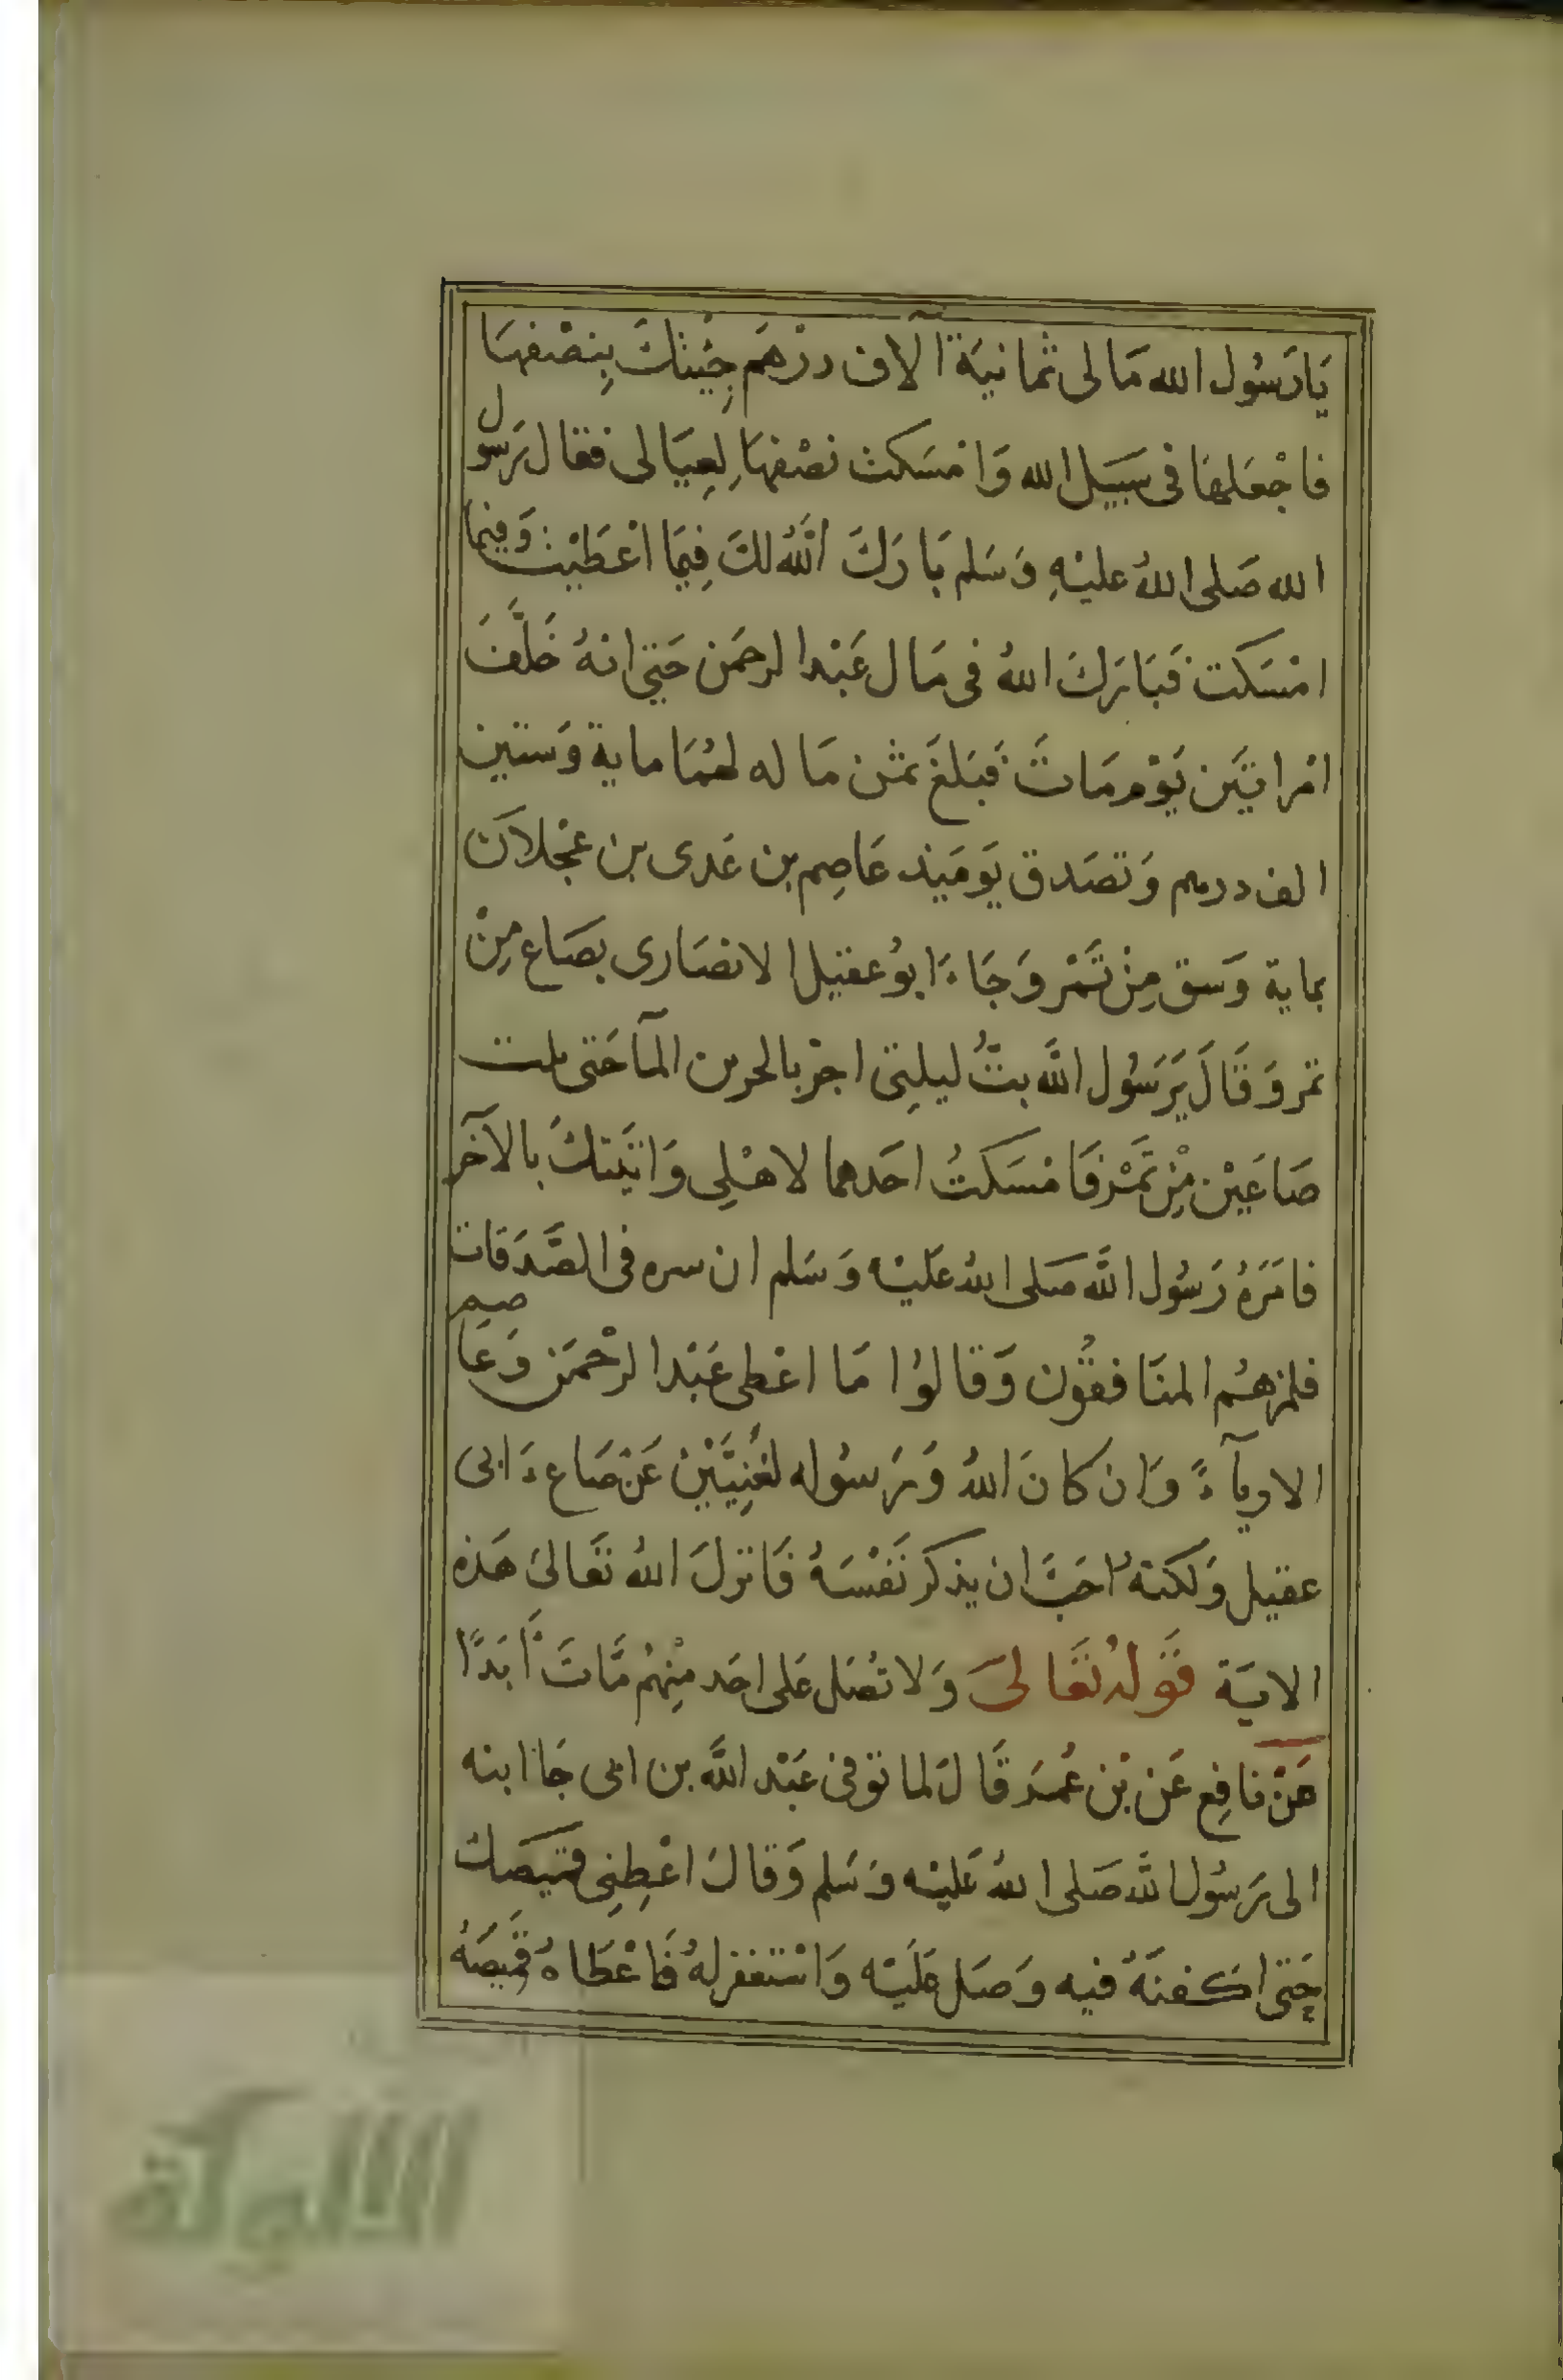 يَارَسُول الله مَالى ثمانيَة آلاف درْهَم جِيْتكَ بِنِصْفهَا
فاجْعَلهَا فى سَبيل الله وَامْسَكت نصْفهَا لِعِيَالى فقال رَسول
الله صَلى اللهُ عليْهِ وَسَلم بَارَكَ اللهُ لكَ فِيمَا اعْطَيْت وَفيما
امْسَكت فَبَارَكَ اللهُ فى مَال عَبْد الرحمَن حَتى انهُ خَلَّفَ
امْراتَين يَوْم مَاتَ فَبَلغَ ثمن مَاله لهُمَا ماية وَستين
الف درهم وَتصَدق يَومَيذ عَاصِم بن عَدى بن عَجْلان
بماية وَسق مِنْ تَمْر وَجَاءَ ابوُ عقيل الانصَارى بصَاع مِنْ
تمر وَقَالَ يَرَسُول اللَّه بتُّ ليلِتى اجرّ بالحرير المآ حَتى نلت
صَاعَيْن مِنْ تَمْر فَامْسَكتُ احَدهما لاهْلِى وَاتَيْتكَ بالآخر
فامَرَهُ رَسُول اللَّه صَلى اللهُ عَليْه وَسَلم ان سره فى الصَّدَقات
فلمزهُم المنَافقُون وَقالوُا مَا اعْطى عَبْد الرحْمَن وَعَاصم
الا ريآءً وَان كانَ اللهُ وَرَسوُله لغَنِيَّيْن عَنْ صَاع ءَ ابى
عقيل وَلكنهُ احَبَّ ان يذكر نَفْسَهُ فَانزلَ اللهُ تَعَالىَ هَذه
الايَة قَولهُ تَعَالىَ وَلا تُصَل عَلى احَد مِنْهُم مَّاتَ اَبَدًا
عَنْ نافِع عَن بْن عُمَرَ قَالَ لما توفى عَبْد اللَّه بن ابى جَا ابنه
الى رَسُول للَّه صَلى اللهُ عَليْه وَسَلم وَقالَ اعْطِنِى قميصَك
حَتى اكفنَهُ فيه وَصَل عَلَيْه وَاسْتغفر لهُ فَاعْطَاهُ قمَيصَهُ
الألوكة